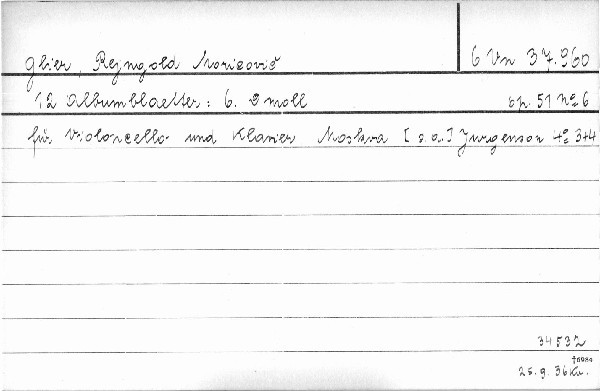 Glier, Rejngold Moricovič 6 Vn 37.960
12 Albumblaetter: 6. e moll op. 51 No 6
für Violoncello und Klavier Moskva [s.a.] Jurgenson 4º 3+4
34532
†6984
25.9.36 Ku.